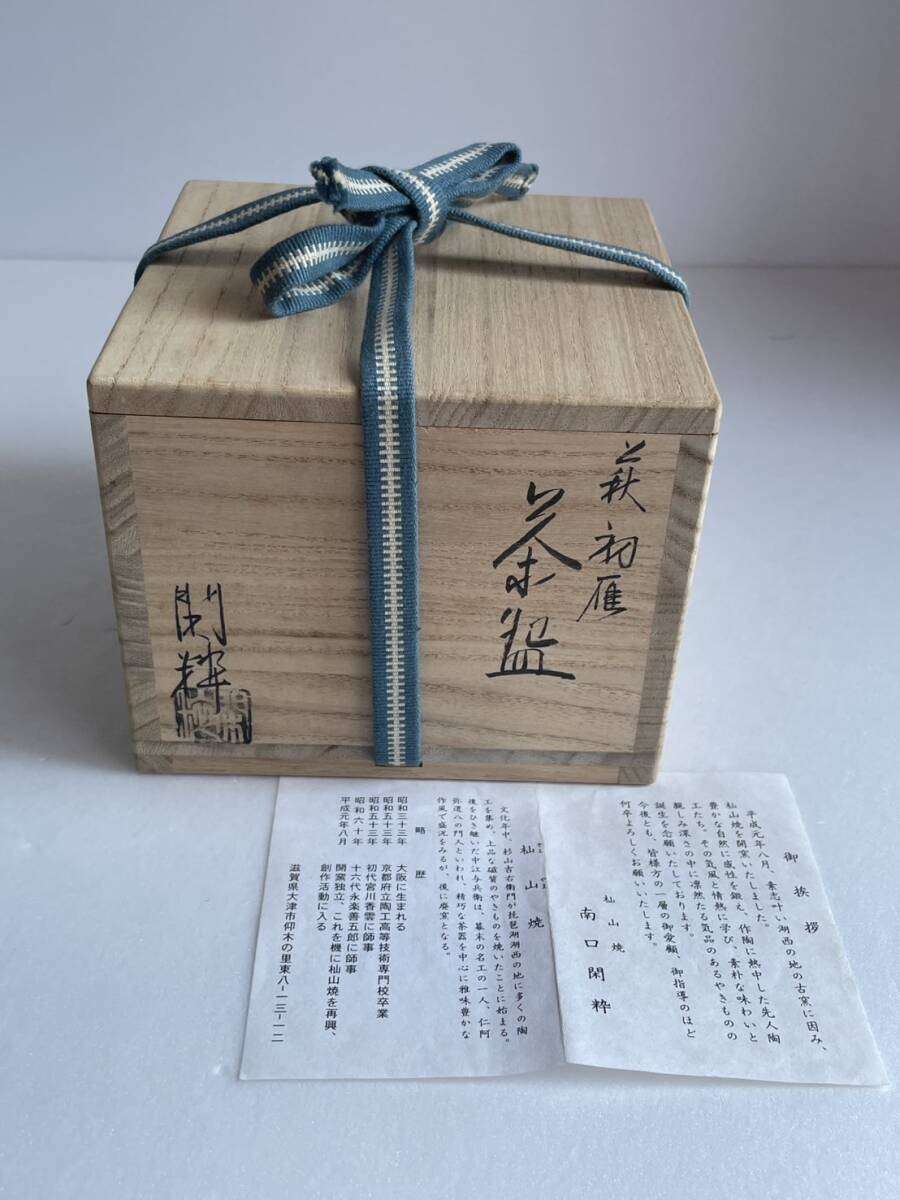 萩 初雁
茶盌
閑粋
御挨拶
平成元年八月、素志叶い湖西の地の古窯に因み、
杣山焼を開窯いたしました。
豊かな自然に感性を鍛え、作陶に熱中した先人陶
工たち。その気風と情熱に学び、素朴な味わいと
親しみ深さの中に凛然たる気品のあるやきものの
誕生を念願いたしております。
今後とも、皆様方の一層の御愛顧、御指導のほど
何卒よろしくお願いいたします。
杣山焼
南口閑粋
杣山焼
文化年中、杉山吉右衛門が琵琶湖湖西の地に多くの陶
工を集め、上品な磁質のやきものを焼いたことに始まる。
後をひき継いだ中江与兵衛は、幕末の名工の一人、仁阿
弥道八の門人といわれ、精巧な茶器を中心に雅味豊かな
作風で盛況をみるが、後に廃窯となる。
略歴
昭和三十三年 大阪に生まれる
昭和五十三年 京都府立陶工高等技術専門校卒業
昭和五十三年 初代宮川香雲に師事
昭和六十年 十六代永楽善五郎に師事
平成元年八月 開窯独立、これを機に杣山焼を再興、
創作活動に入る
滋賀県大津市仰木の里東八-一三-一二